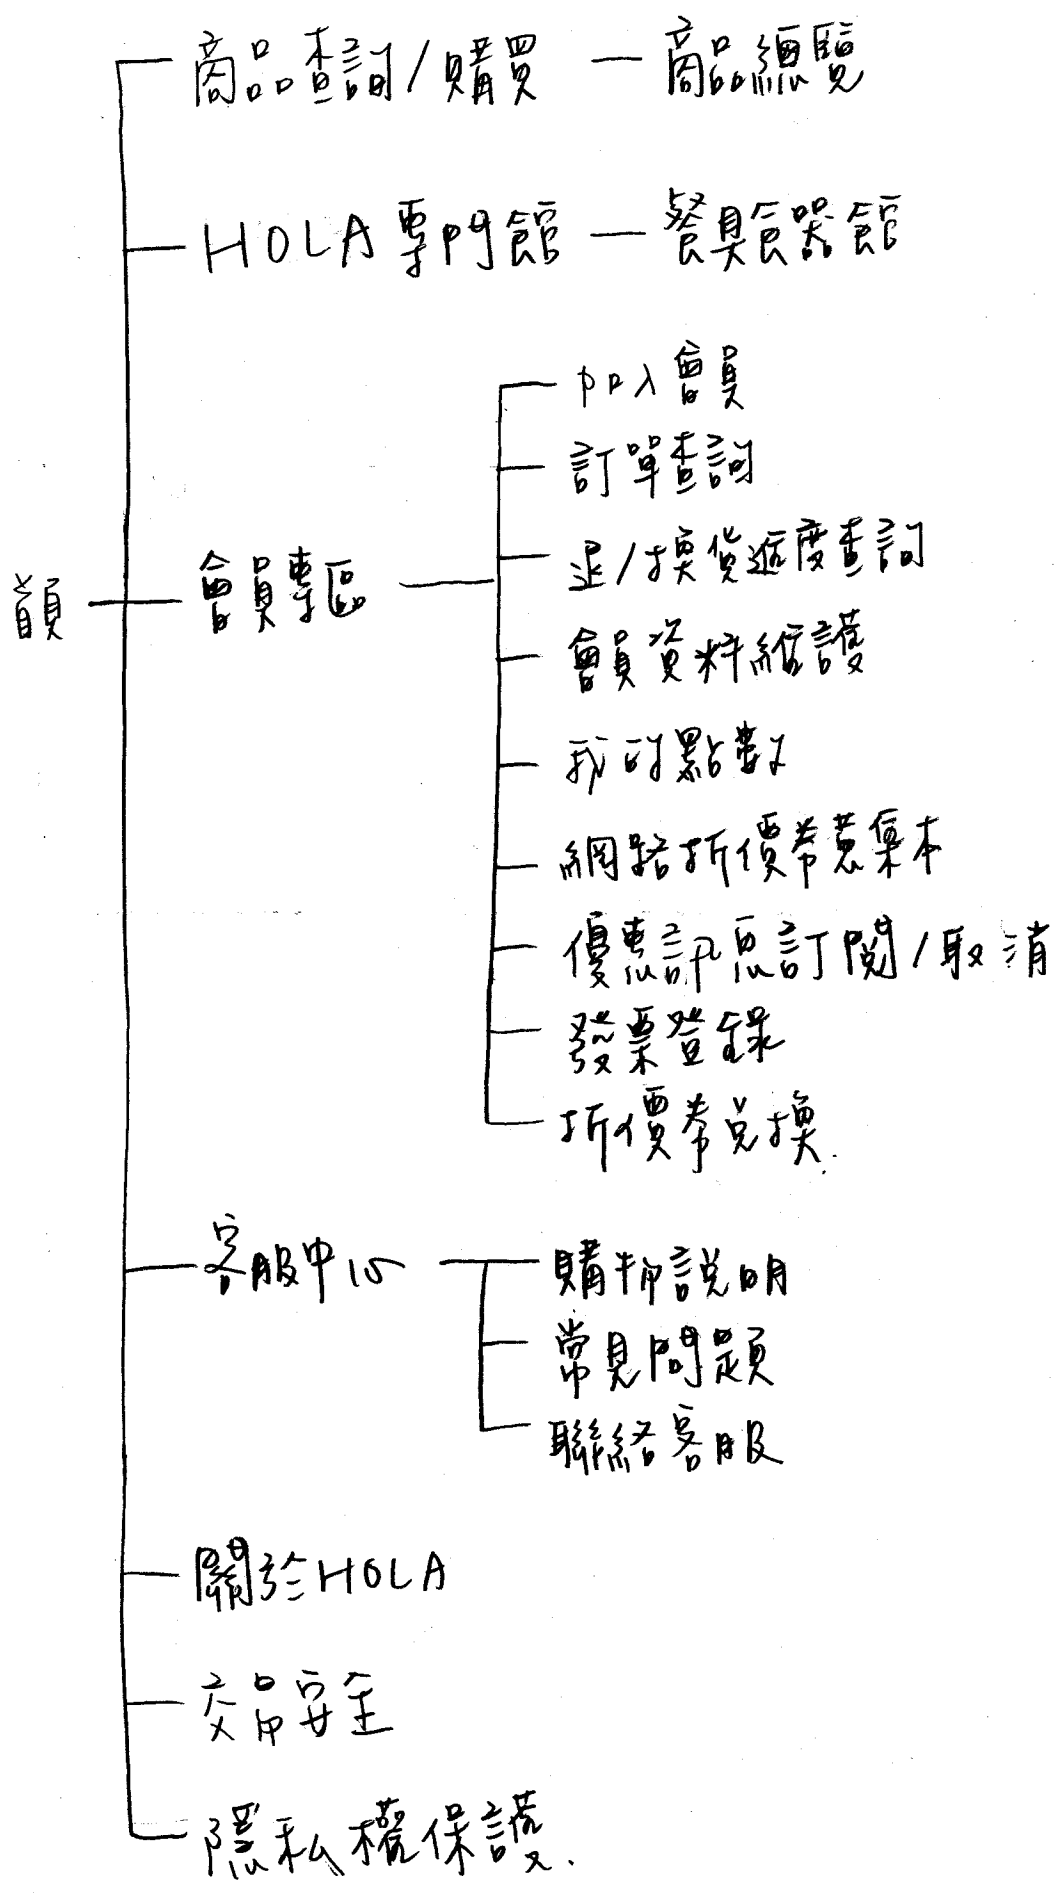 商品查詢/購買 — 商品總覽
HOLA專門館 — 餐具食器館
加入會員
訂單查詢
退/換貨進度查詢
首頁
會員專區
會員資料維護
我的點數
網路折價券蒐集本
優惠訊息訂閱/取消
發票登錄
折價券兌換
客服中心
購物說明
常見問題
聯絡客服
關於HOLA
交易安全
隱私權保護